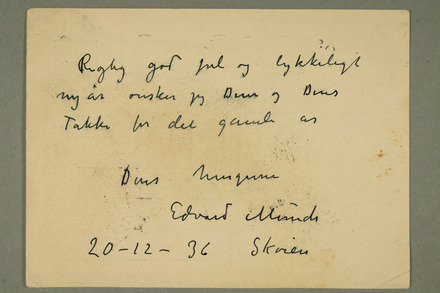 Rigtig god jul og lykkeligt
nyår ønsker jeg Dem og Deres
Takk for det gamle år
Deres
Edvard Munch
20-12-36 Skøien